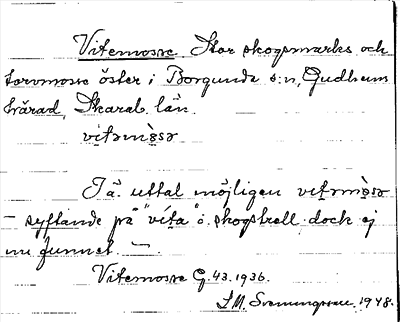 Vitemosse. Stor skogsmarks och
torvmosse öster i Borgunda s:n, Gudhems
härad, Skarab. län.
vitəmòsə
I ä. uttal möjligen vitəmòsə
– syftande på "vita" ö. skogstroll, dock ej
nu funnet. –
Vitemosse G. 43. 1936.
S.M. Svenungsson. 1948.